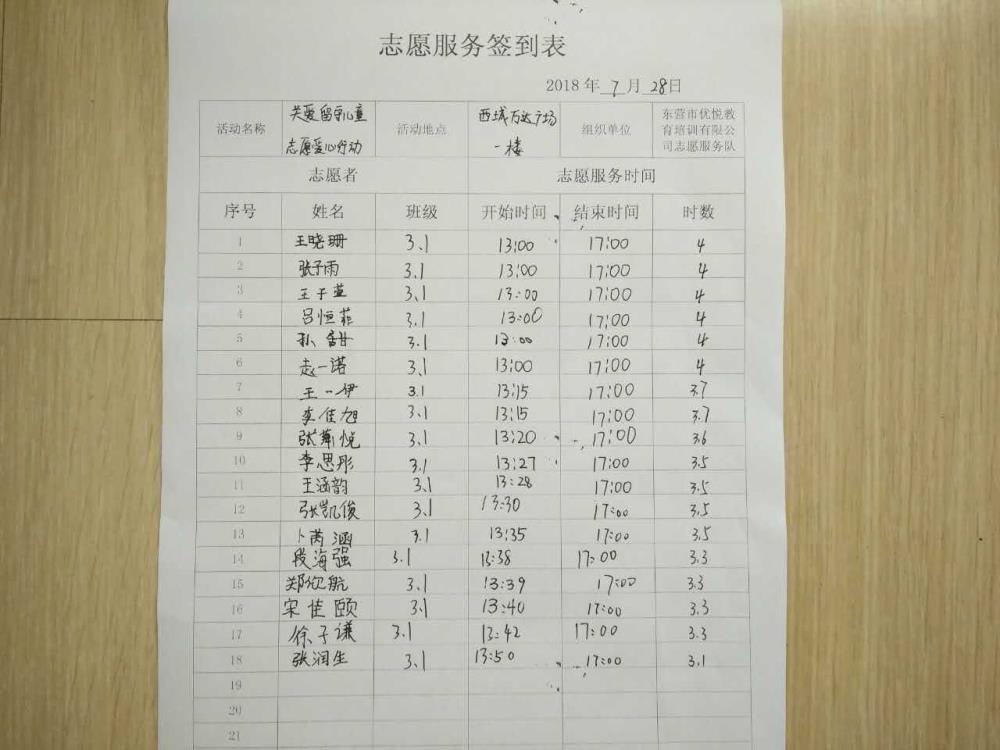 志愿服务签到表
2018 年 7 月 28日
活动名称 关爱留守儿童志愿爱心行动 活动地点 西城万达广场一楼 组织单位 东营市优悦教育培训有限公司志愿服务队
志愿者 志愿服务时间
序号 姓名 班级 开始时间 结束时间 时数
1 王晓珊 3.1 13:00 17:00 4
2 张子雨 3.1 13:00 17:00 4
3 王子萱 3.1 13:00 17:00 4
4 吕恒菲 3.1 13:00 17:00 4
5 孙 3.1 13:00 17:00 4
6 赵一诺 3.1 13:00 17:00 4
7 王一伊 3.1 13:15 17:00 3.7
8 李佳旭 3.1 13:15 17:00 3.7
9 张 悦 3.1 13:20 17:00 3.6
10 李思彤 3.1 13:27 17:00 3.5
11 王涵韵 3.1 13:28 17:00 3.5
12 张凯俊 3.1 13:30 17:00 3.5
13 卜芮涵 3.1 13:35 17:00 3.5
14 段海强 3.1 13:38 17:00 3.3
15 郑欣航 3.1 13:39 17:00 3.3
16 宋佳颐 3.1 13:40 17:00 3.3
17 徐子谦 3.1 13:42 17:00 3.3
18 张润生 3.1 13:50 17:00 3.1
19
20
21